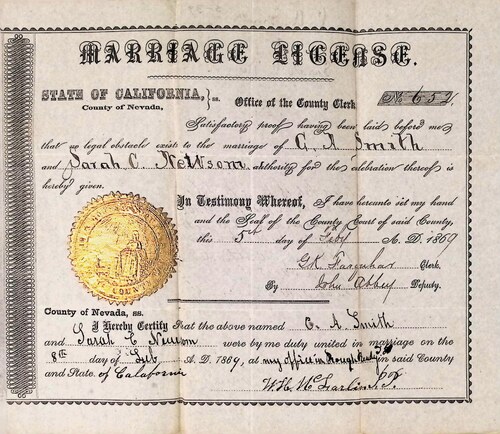 MARRIAGE LICENSE.
STATE OF CALIFORNIA, } ss.
County of Nevada,
Office of the County Clerk
No 652.
Satisfactory proof having been laid before me
that no legal obstacle exist to the marriage of C. A Smith
and Sarah C. authority for the celebration thereof is
hereby given.
In Testimony Whereof, I have hereunto set my hand
and the Seal of the County Court of said County,
this 5th day of Feby A. D. 1869
G.K. Farquhar Clerk.
By John Abbey Deputy.
County of Nevada, ss.
I Hereby Certify That the above named C. A. Smith
and Sarah C were by me duly united in marriage on the
8th day of Feb A. D. 1869, at my office in Rough & Ready in said County
and State. of Calafornia
W. H.